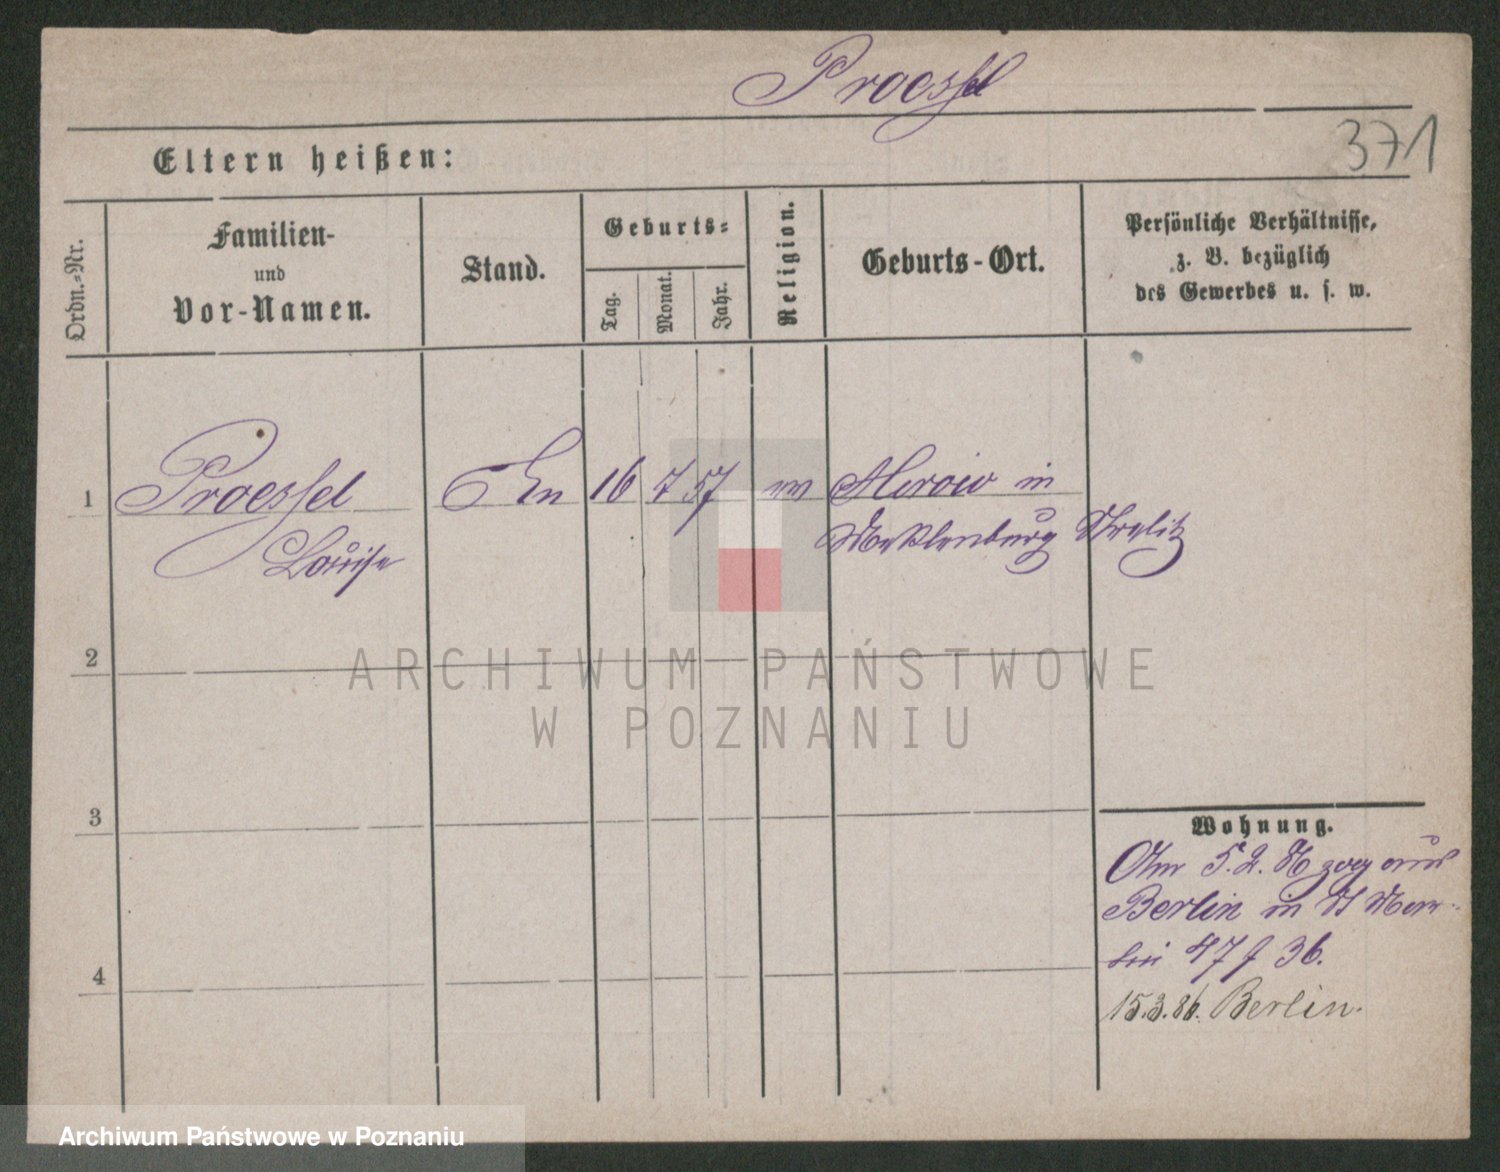 Proessel
371
Eltern heißen:
Ordn.-Nr.
Familien-
und
Vor-Namen.
Stand.
Geburts-
Tag.
Monat.
Jahr.
Religion.
Geburts-Ort.
Persönliche Verhältnisse,
z. B. bezüglich
des Gewerbes u. s. w.
1 Proessel 16 7 57 in
Louise Mecklenburg Strelitz
2
ARCHIWUM PAŃSTWOWE
W POZNANIU
3
Wohnung.
5.2. zog aus
Berlin in
bei 47 f 36.
4
15.3.86. Berlin.
Archiwum Państwowe w Poznaniu